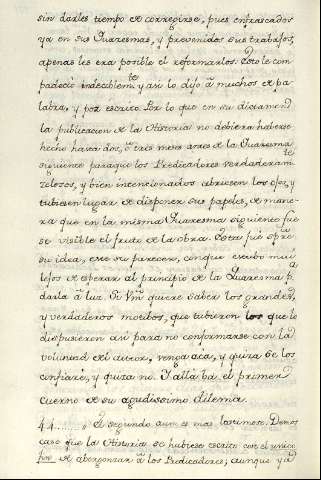 sin darles tiempo de corregirse, pues enfrascados
ya en sus Quaresmas, y prevenidos sus trabajos,
apenas les era posible el reformarlos. Esto le com
padecia indecible.te y asi lo dijo à muchos de pa-
labra, y por escrito. Por lo que en su dictamen
la publicacion de la Historia no debiera haberse
hecho hasta dos, ò tres meses antes de la Quaresma
siguiente para que los Predicadores verdaderam.te
zelosos, y bien intencionados abriesen los ojos, y
tubiesen lugar de disponer sus papeles, de mane-
ra que en la misma Quaresma siguiente fue
se visible el fruto de la obra. Esta fué spre.
su idea, este su parecer, con que estubo mui
lejos de esperar al principio de la Quaresma p.a
darla à luz. Si Vm. quiere saber los grandes,
y verdaderos motibos, que tubieron los que le
dispusieron asi para no conformarse con la
voluntad del autor, venga acà, y quiza se los
confiarè, y quiza no. Y allà bà el primer
cuerno de su agudissimo dilema.
44...... El segundo aun es mas lastimoso. Demos
caso que la Historia se hubiese escrito con el unico
fin de abergonzar à los Predicadores, aunque yà